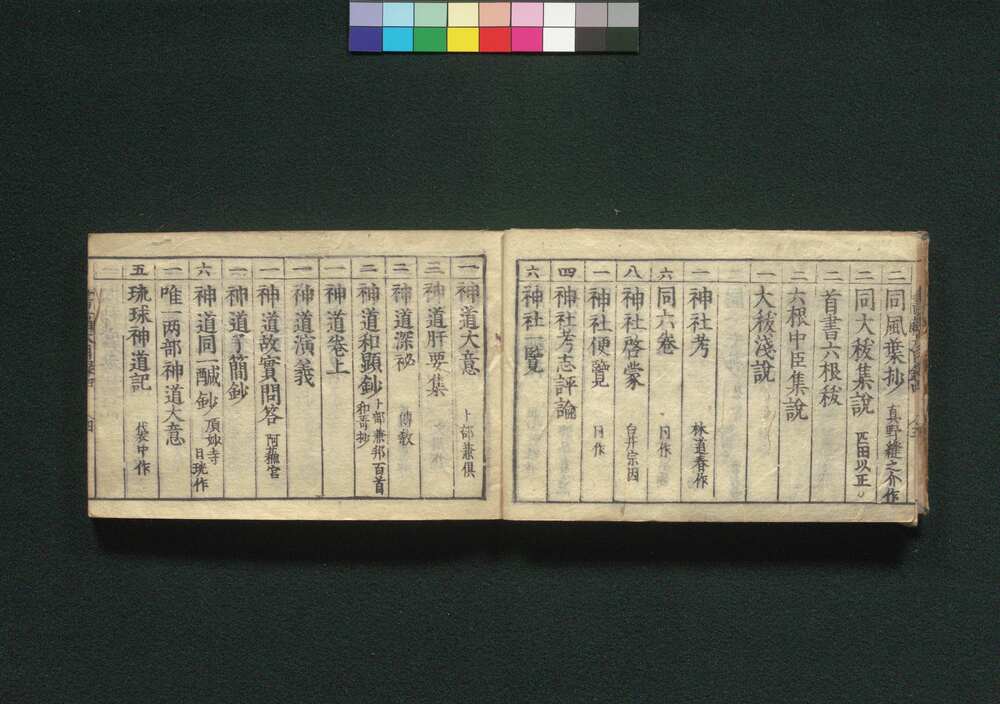 二 同風葉抄 真野縫之介作
二 同大秡集說 匹田以正〃
二 首書六根秡
二 六根中臣集說
一 大秡淺說
一 神社考 林道春作
六 同六卷 同作
八 神社啓蒙 白井宗因
一 神社便覽 同作
四 神社考志評論
六 神社一覽
一 神道大意 卜部兼俱
三 神道肝要集
二 神道深祕 傳教
二 神道和顯鈔 卜部兼邦百首和哥抄
一 神道卷上
一 神道演義
一 神道故實問答 阿蘓宮
一 神道了簡鈔
六 神道同一鹹鈔 頂妙寺日珖作
一 唯一两部神道大意
五 琉球神道記 袋中作